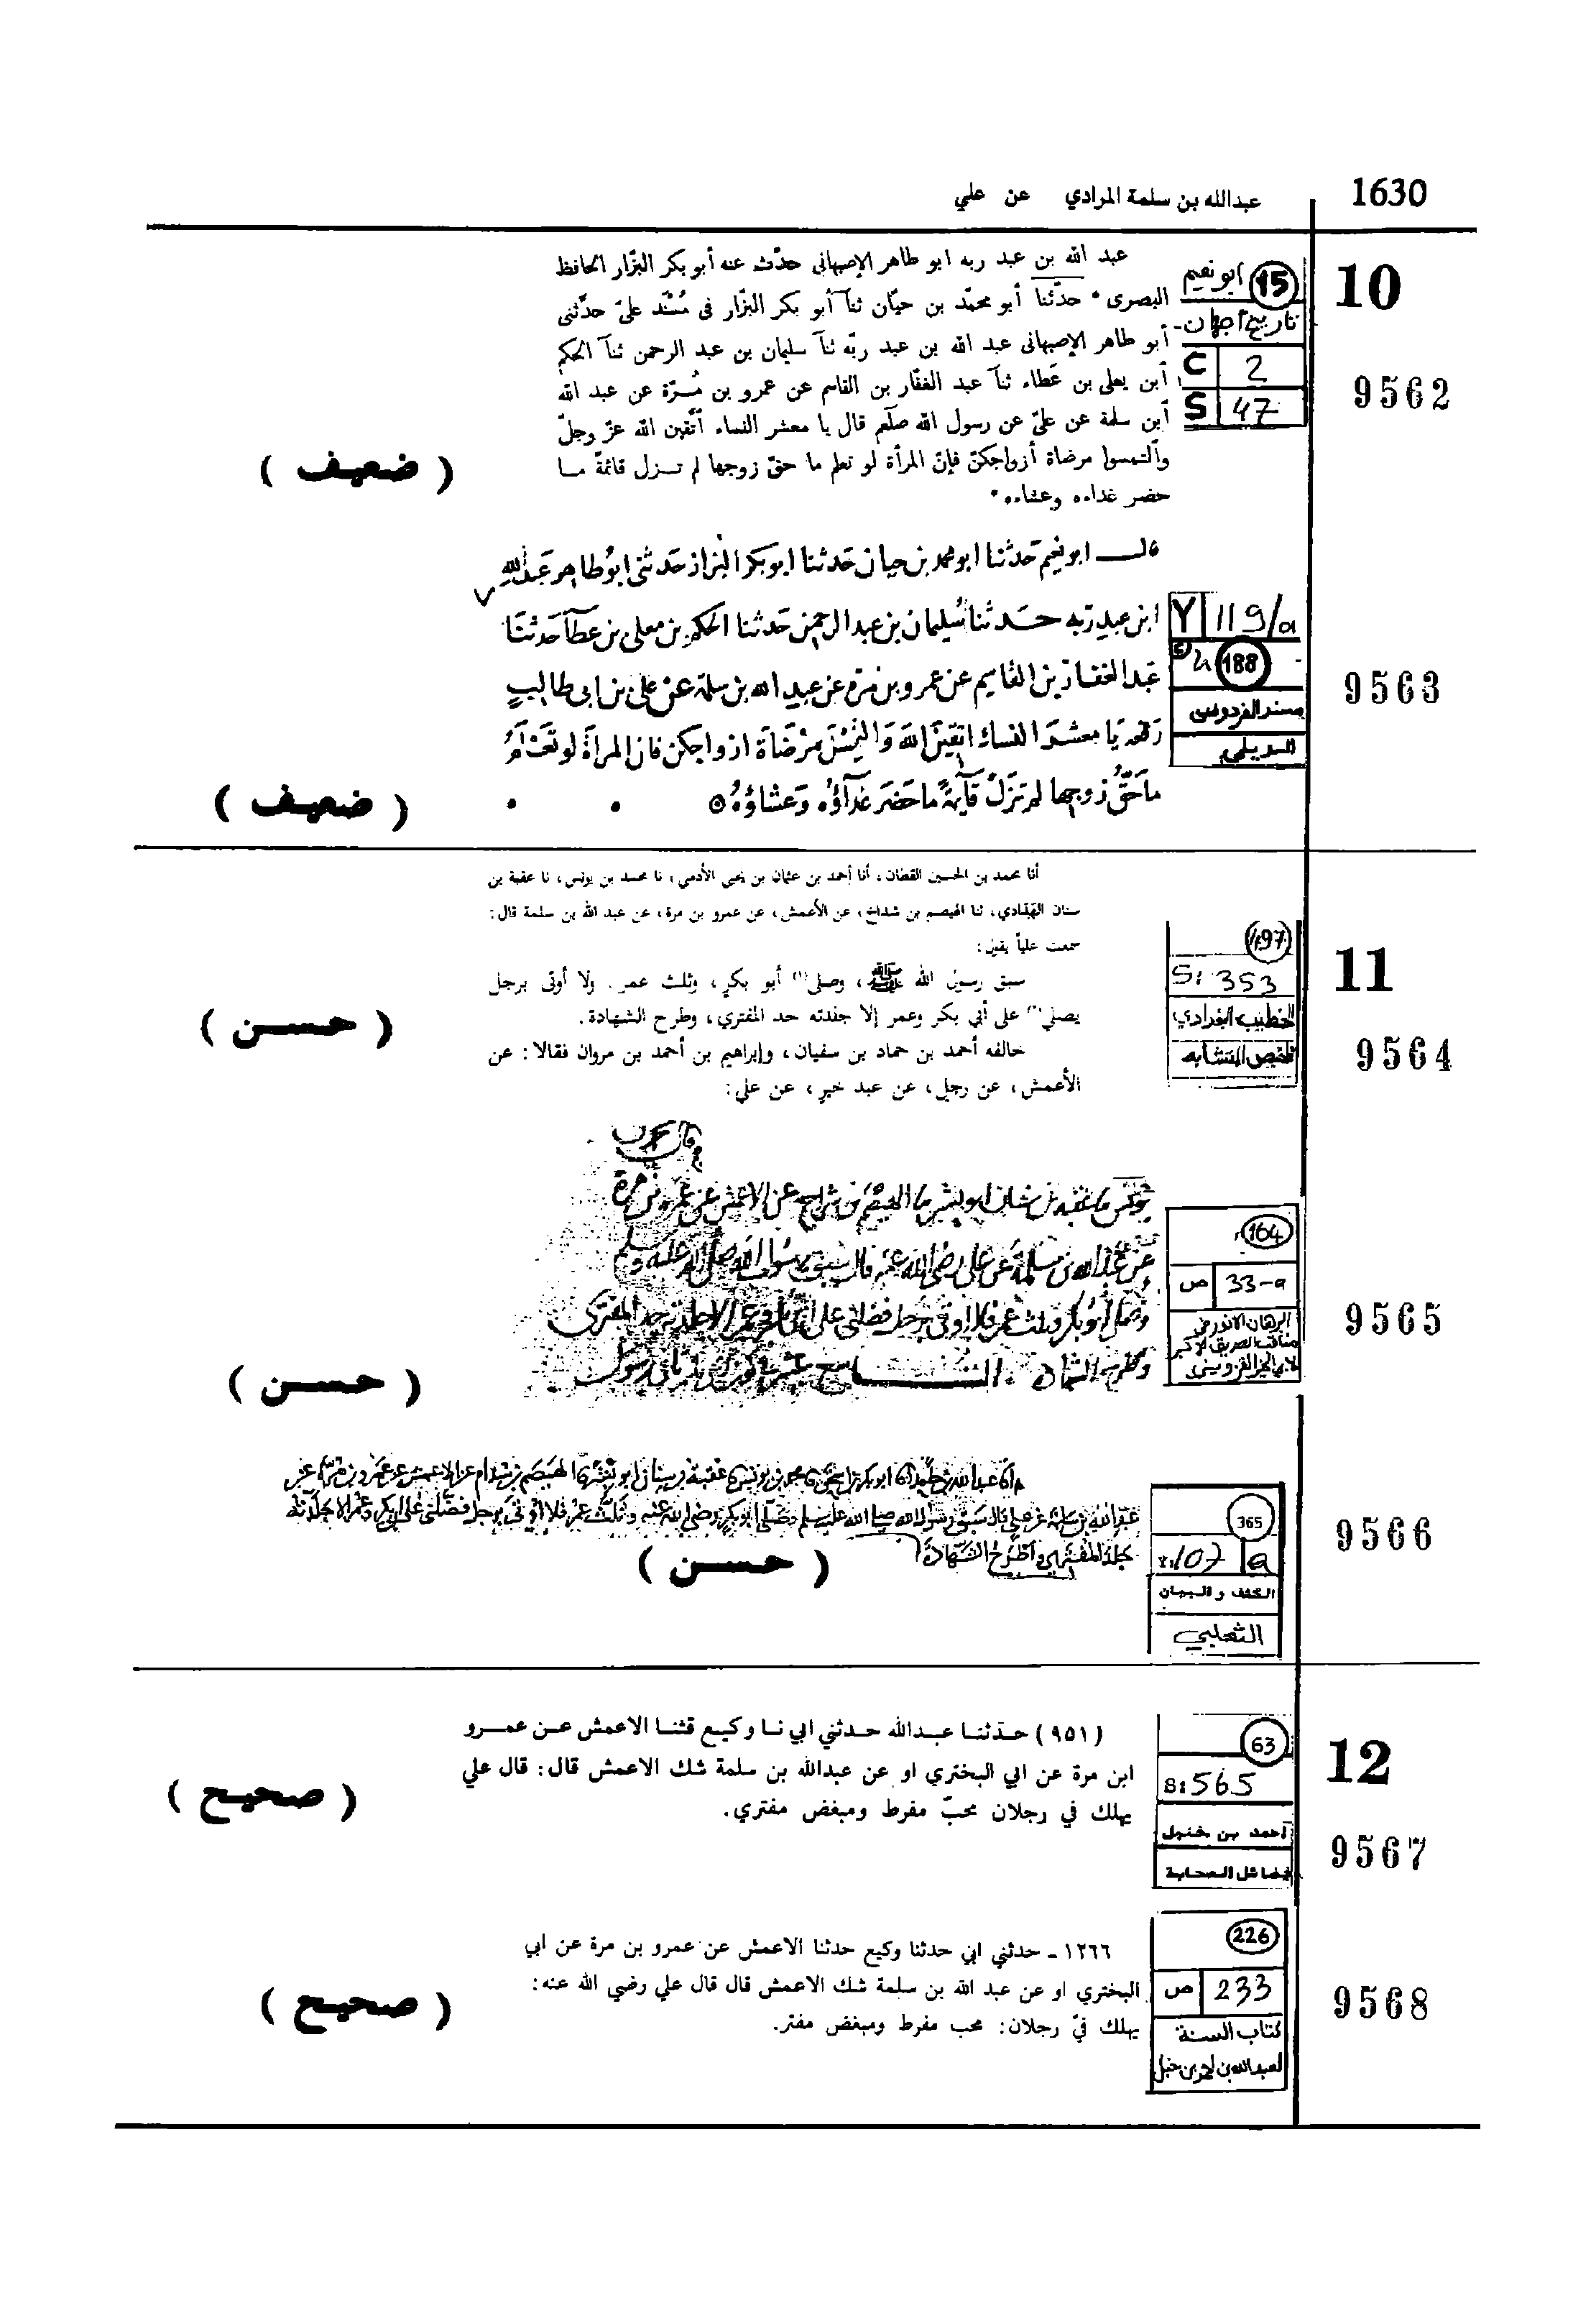 1630
عبدالله بن سلمة المرادي عن علي
10
15 ابو نعيم
تاريخ اصبهان
C 2
S 47
9562
عبد الله بن عبد ربه ابو طاهر الإصبهانى حدّث عنه أبو بكر البزّار الحافظ
البصرى • حدّثنا أبو محمّد بن حيّان ثنآ أبو بكر البزّار فى مُسْنَد علىّ حدّثنى
أبو طاهر الإصبهانى عبد الله بن عبد ربّه ثنآ سليمان بن عبد الرحمن ثنآ الحكم
أبن يعلى بن عَطاء ثنآ عبد الغفّار بن القاسم عن عمرو بن مُـرّة عن عبد الله
أبن سلمة عن علىّ عن رسول الله صلّعم قال يا معشر النساء أتّقين الله عزّ وجلّ
وآلتمسوا مرضاة أزواجكنّ فإنّ المرأة لو تعلم ما حقّ زوجها لم تـزل قائمةً مـا
حضر غداءه وعشاءه •
( ضعيف )
Y 119/a
188
مسند الفردوس
الديلمي
9563
قال ابو نعيم حَدثنا ابو محمد بن حيان حَدثنا ابو بكر البزاز حَدثنى ابوُ طاهر عَبدُالله
ابن عبدِ ربّه حَدثنا سُليمان بن عبد الرحمن حَدثنا الحكم بن معلى بن عَطآ حَدثنَا
عَبد الغفار بن القاسِم عن عمرو بن مرة عن عبدِ الله بن سلمة عن على بن ابى طالِبٍ
رَفعَه يَا معشَرَ النساء اتقينَ الله وَالتمِسْنَ مرْضَاةَ ازواجكن فان المرأة لو تَعْلمُ
مَا حَقُّ زوجها لم تزَلْ قَآيمةً ما حَضَر غَدآؤُه وَعشاؤُهُ
( ضعيف )
11
497
S: 353
الخطيب البغدادي
تلخيص المتشابه
9564
أنا محمد بن الحسين القطان، أنا أحمد بن عثمان بن يحيى الأدمي، نا محمد بن يونس، نا عقبة بن
سنان الهَدَادي، ثنا الهيصم بن شداخ، عن الأعمش، عن عمرو بن مرة، عن عبد الله بن سلمة قال:
سمعت علياً يقول:
سبق رسول الله ﷺ، وصلى(١) أبو بكرٍ، وثلث عمر. ولا أوتى برجل
يصلي(٢) على أبي بكر وعمر إلا جلدته حد المفتري، وطرح الشهادة.
خالفه أحمد بن حماد بن سفيان، وإبراهيم بن أحمد بن مروان فقالا: عن
الأعمش، عن رجل، عن عبد خيرٍ، عن علي:
( حسن )
164
ص 33-a
9565
عن عبد الله بن سلمة عن على رضى الله عنه قال سبق رسول الله صلى الله عليه وسلم
وصلى أبو بكر وثلث عمر فلا اوتى برجل فضلنى على
( حسن )
365
107 a
الكشف والبيان
الثعلبي
9566
عبد الله بن سلمة عن على قال سبق رسول الله صلى الله عليه وسلم وصلى ابو بكر رضى الله عنه وثلث عمر فلا اوتى برجل فضلنى على ابى بكر وعمر الا جلدته
جلد المفترى واطرح الشهادة
( حسن )
12
63
S: 565
احمد بن حنبل
فضائل الصحابة
9567
(٩٥١) حدثنا عبدالله حدثني ابي نا وكيع قثنا الاعمش عن عمرو
ابن مرة عن ابي البختري او عن عبدالله بن سلمة شك الاعمش قال: قال علي
يهلك في رجلان محبّ مفرط ومبغض مفتري.
( صحيح )
226
ص 233
كتاب السنة
لعبدالله بن احمد بن حنبل
9568
١٢٦٦ ـ حدثني ابي حدثنا وكيع حدثنا الاعمش عن عمرو بن مرة عن ابي
البختري او عن عبد الله بن سلمة شك الاعمش قال قال علي رضي الله عنه:
يهلك فيّ رجلان: محب مفرط ومبغض مفتر.
( صحيح )